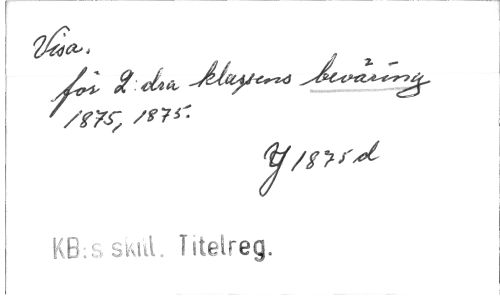 Visa.
för 2:dra klassens beväring
1875, 1875.
Y 1875 d
KB:s skill. Titelreg.